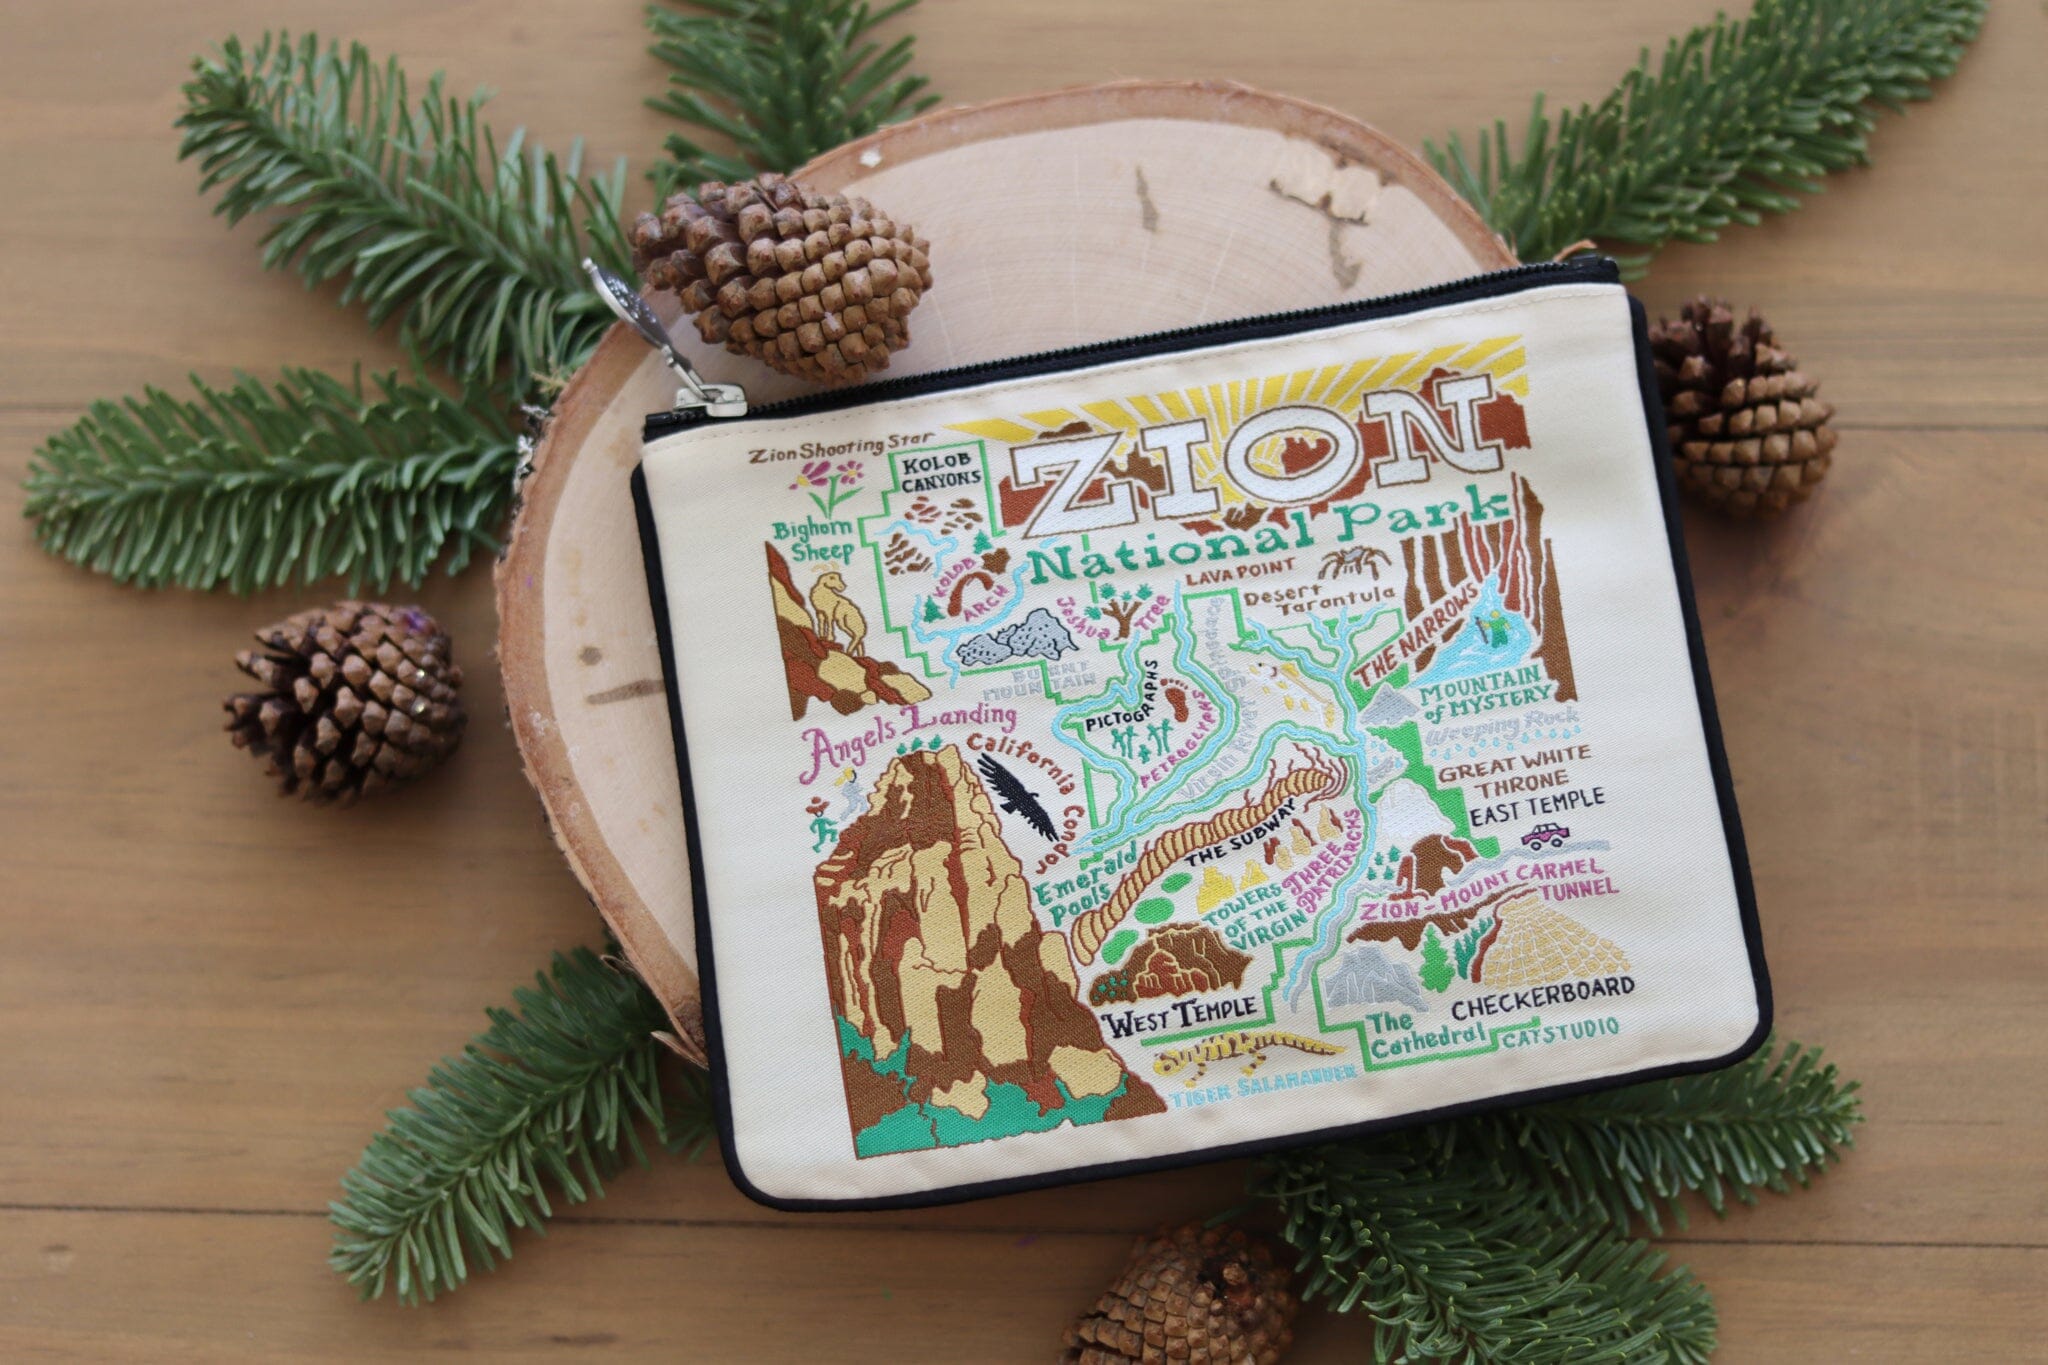 ZION
National Park
Zion Shooting Star
KOLOB
CANYONS
Bighorn
Sheep
KOLOB
ARCH
Joshua
Tree
LAVA POINT
Desert
Tarantula
THE NARROWS
BURNT
MOUNTAIN
PICTOGRAPHS
PETROGLYPHS
Virgin River
MOUNTAIN
of MYSTERY
Weeping Rock
Angels Landing
California Condor
GREAT WHITE
THRONE
EAST TEMPLE
THE SUBWAY
Emerald
Pools
THREE
PATRIARCHS
TOWERS
OF THE
VIRGIN
ZION-MOUNT CARMEL
TUNNEL
WEST TEMPLE
CHECKERBOARD
The
Cathedral
CATSTUDIO
TIGER SALAMANDER